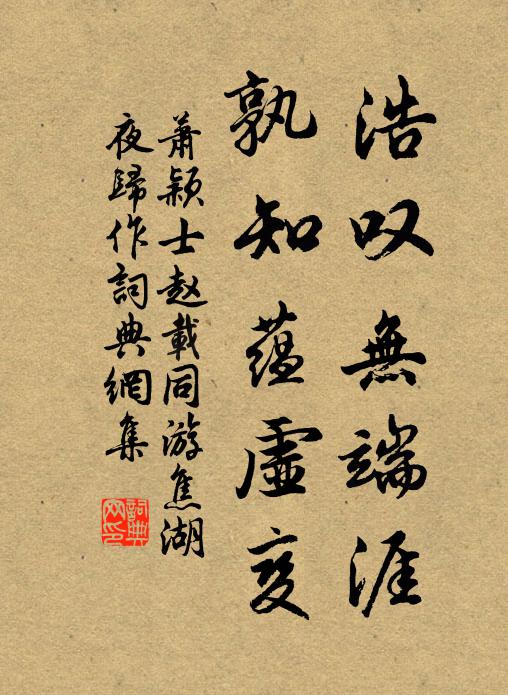 浩叹無端涯
孰知蕴虛变
蕭颖士赵載同游焦湖
夜歸作詞典網集
詞典
网印